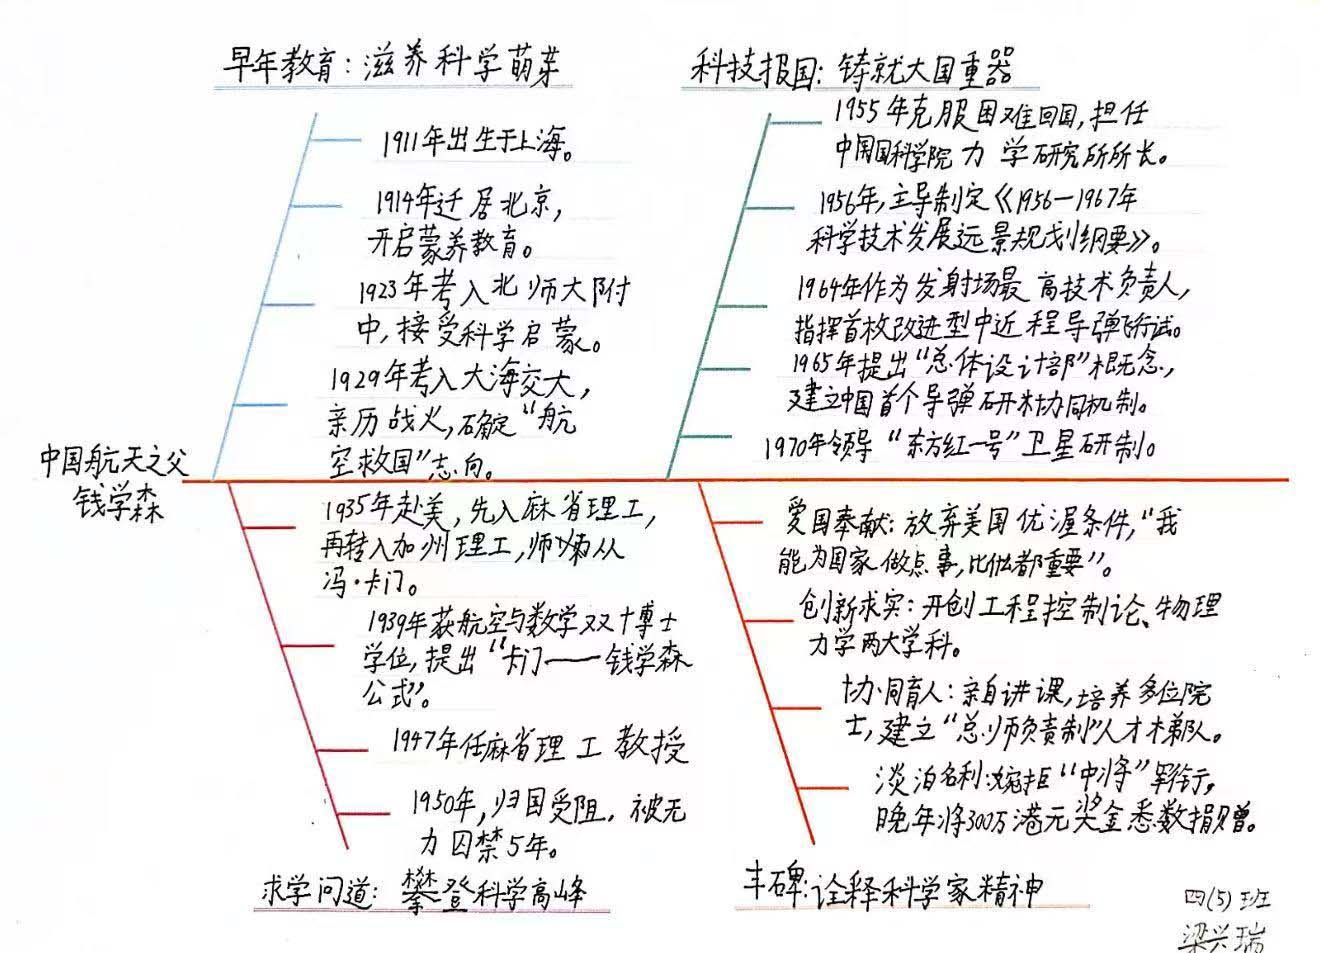 早年教育：滋养科学萌芽
1911年出生于上海。
1914年迁居北京，
开启蒙养教育。
1923年考入北师大附
中，接受科学启蒙。
1929年考入大海交大，
亲历战火，确定“航
空救国”志向。
科技报国：铸就大国重器
1955年克服困难回国，担任
中国科学院力学研究所所长。
1956年，主导制定《1956—1967年
科学技术发展远景规划纲要》。
1964年作为发射场最高技术负责人，
指挥首枚改进型中近程导弹飞行试。
1965年提出“总体设计部”概念，
建立中国首个导弹研制协同机制。
1970年领导“东方红一号”卫星研制。
中国航天之父
钱学森
1935年赴美，先入麻省理工，
再转入加州理工，师从
冯·卡门。
1939年获航空与数学双博士
学位，提出“卡门——钱学森
公式”。
1947年任麻省理工教授
1950年，归国受阻，被无
力囚禁5年。
求学问道：攀登科学高峰
爱国奉献：放弃美国优渥条件，“我
能为国家做点事，比什么都重要”。
创新求实：开创工程控制论、物理
力学两大学科。
协同育人：亲自讲课，培养多位院
士，建立“总师负责制”人才梯队。
淡泊名利：婉拒“中将”军衔，
晚年将300万港元奖金悉数捐赠。
丰碑：诠释科学家精神
四(5)班
梁兴瑞